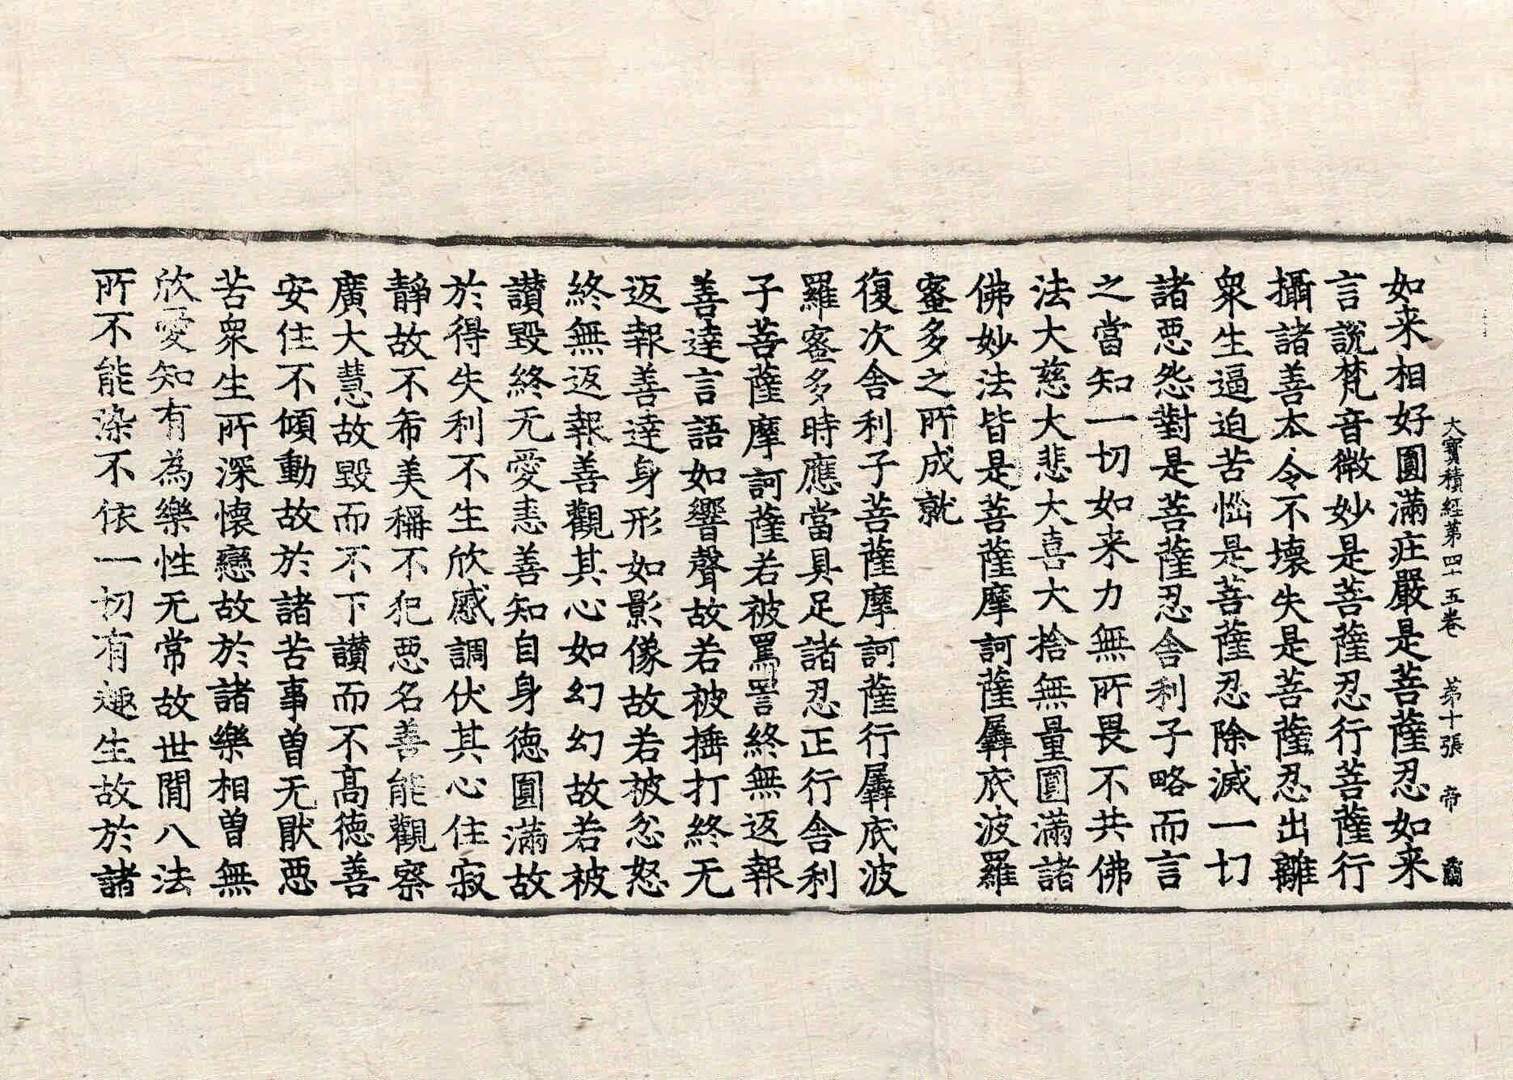 大寶積經第四十五卷　第十張　帝
如来相好圓滿庄嚴是菩薩忍如来
言說梵音微妙是菩薩忍行菩薩行
攝諸善本令不壞失是菩薩忍出離
衆生逼迫苦惱是菩薩忍除滅一切
諸惡怨對是菩薩忍舍利子略而言
之當知一切如来力無所畏不共佛
法大慈大悲大喜大捨無量圓滿諸
佛妙法皆是菩薩摩訶薩羼底波羅
蜜多之所成就
復次舍利子菩薩摩訶薩行羼底波
羅蜜多時應當具足諸忍正行舍利
子菩薩摩訶薩若被罵詈終無返報
善達言語如響聲故若被捶打終无
返報善達身形如影像故若被忿怒
終無返報善觀其心如幻幻故若被
讃毀終无愛恚善知自身德圓滿故
於得失利不生欣慼調伏其心住寂
靜故不希美稱不犯惡名善能觀察
廣大慧故毀而不下讃而不高德善
安住不傾動故於諸苦事曽无猒惡
苦衆生所深懷戀故於諸樂相曽無
欣愛知有為樂性无常故世間八法
所不能染不依一切有趣生故於諸